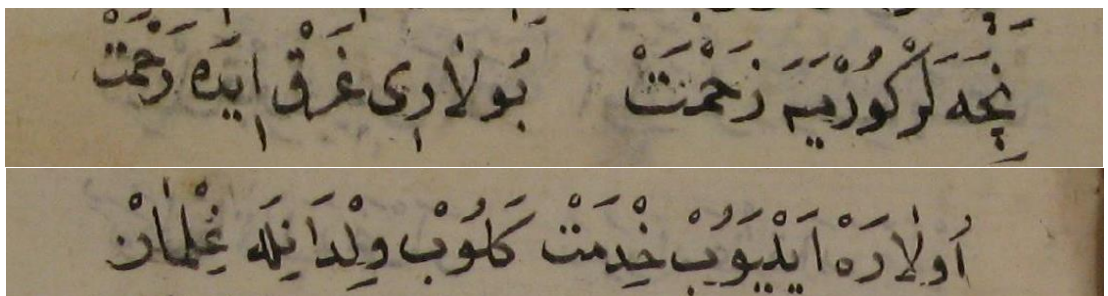 نِچَه لَرْ كُورْمَيَه زَحْمَتْ بُولَارِى غَرْق اِيدَه رَحْمَتْ
اُولَارَهْ اَيْلَيُوبْ خِدْمَتْ كَلُوبْ وِلْدَانِلَه غِلْمَانْ